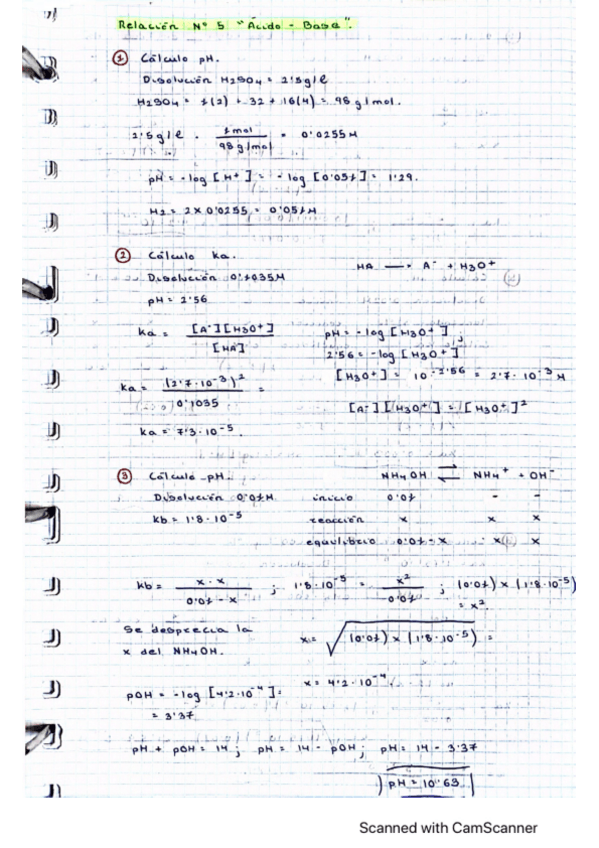 Relación Nº 5 "Ácido - Base".
① Cálculo pH.
Disolución H2SO4 = 2'5g/l
H2SO4 = 1(2) + 32 + 16(4) = 98 g/mol.
2'5g/l · 1mol / 98g/mol = 0'0255M
pH = -log [H+] = -log [0'051] = 1'29.
H2 = 2x0'0255 = 0'051M
② Cálculo ka.
HA → A- + H3O+
Disolución 0'1035M
pH = 2'56
ka = [A-][H3O+] / [HA]
pH = -log [H3O+];
2'56 = -log [H3O+]
[H3O+] = 10^-2'56 = 2'7·10^-3 M
ka = (2'7·10^-3)^2 / 0'1035 =
[A-][H3O+] = [H3O+]^2
ka = 7'3·10^-5.
③ Cálculo pH.
NH4OH ⇌ NH4+ + OH-
Disolución 0'01M
inicio 0'01 - -
kb = 1'8·10^-5
reacción x x x
equilibrio 0'01-x x x
kb = x·x / 0'01-x ; 1'8·10^-5 = x^2 / 0'01 ; (0'01)x(1'8·10^-5) = x^2
Se desprecia la
x del NH4OH.
x = √(0'01)x(1'8·10^-5) =
x = 4'2·10^-4
pOH = -log [4'2·10^-4] =
= 3'37
pH + pOH = 14; pH = 14 - pOH; pH = 14 - 3'37
pH = 10'63
Scanned with CamScanner